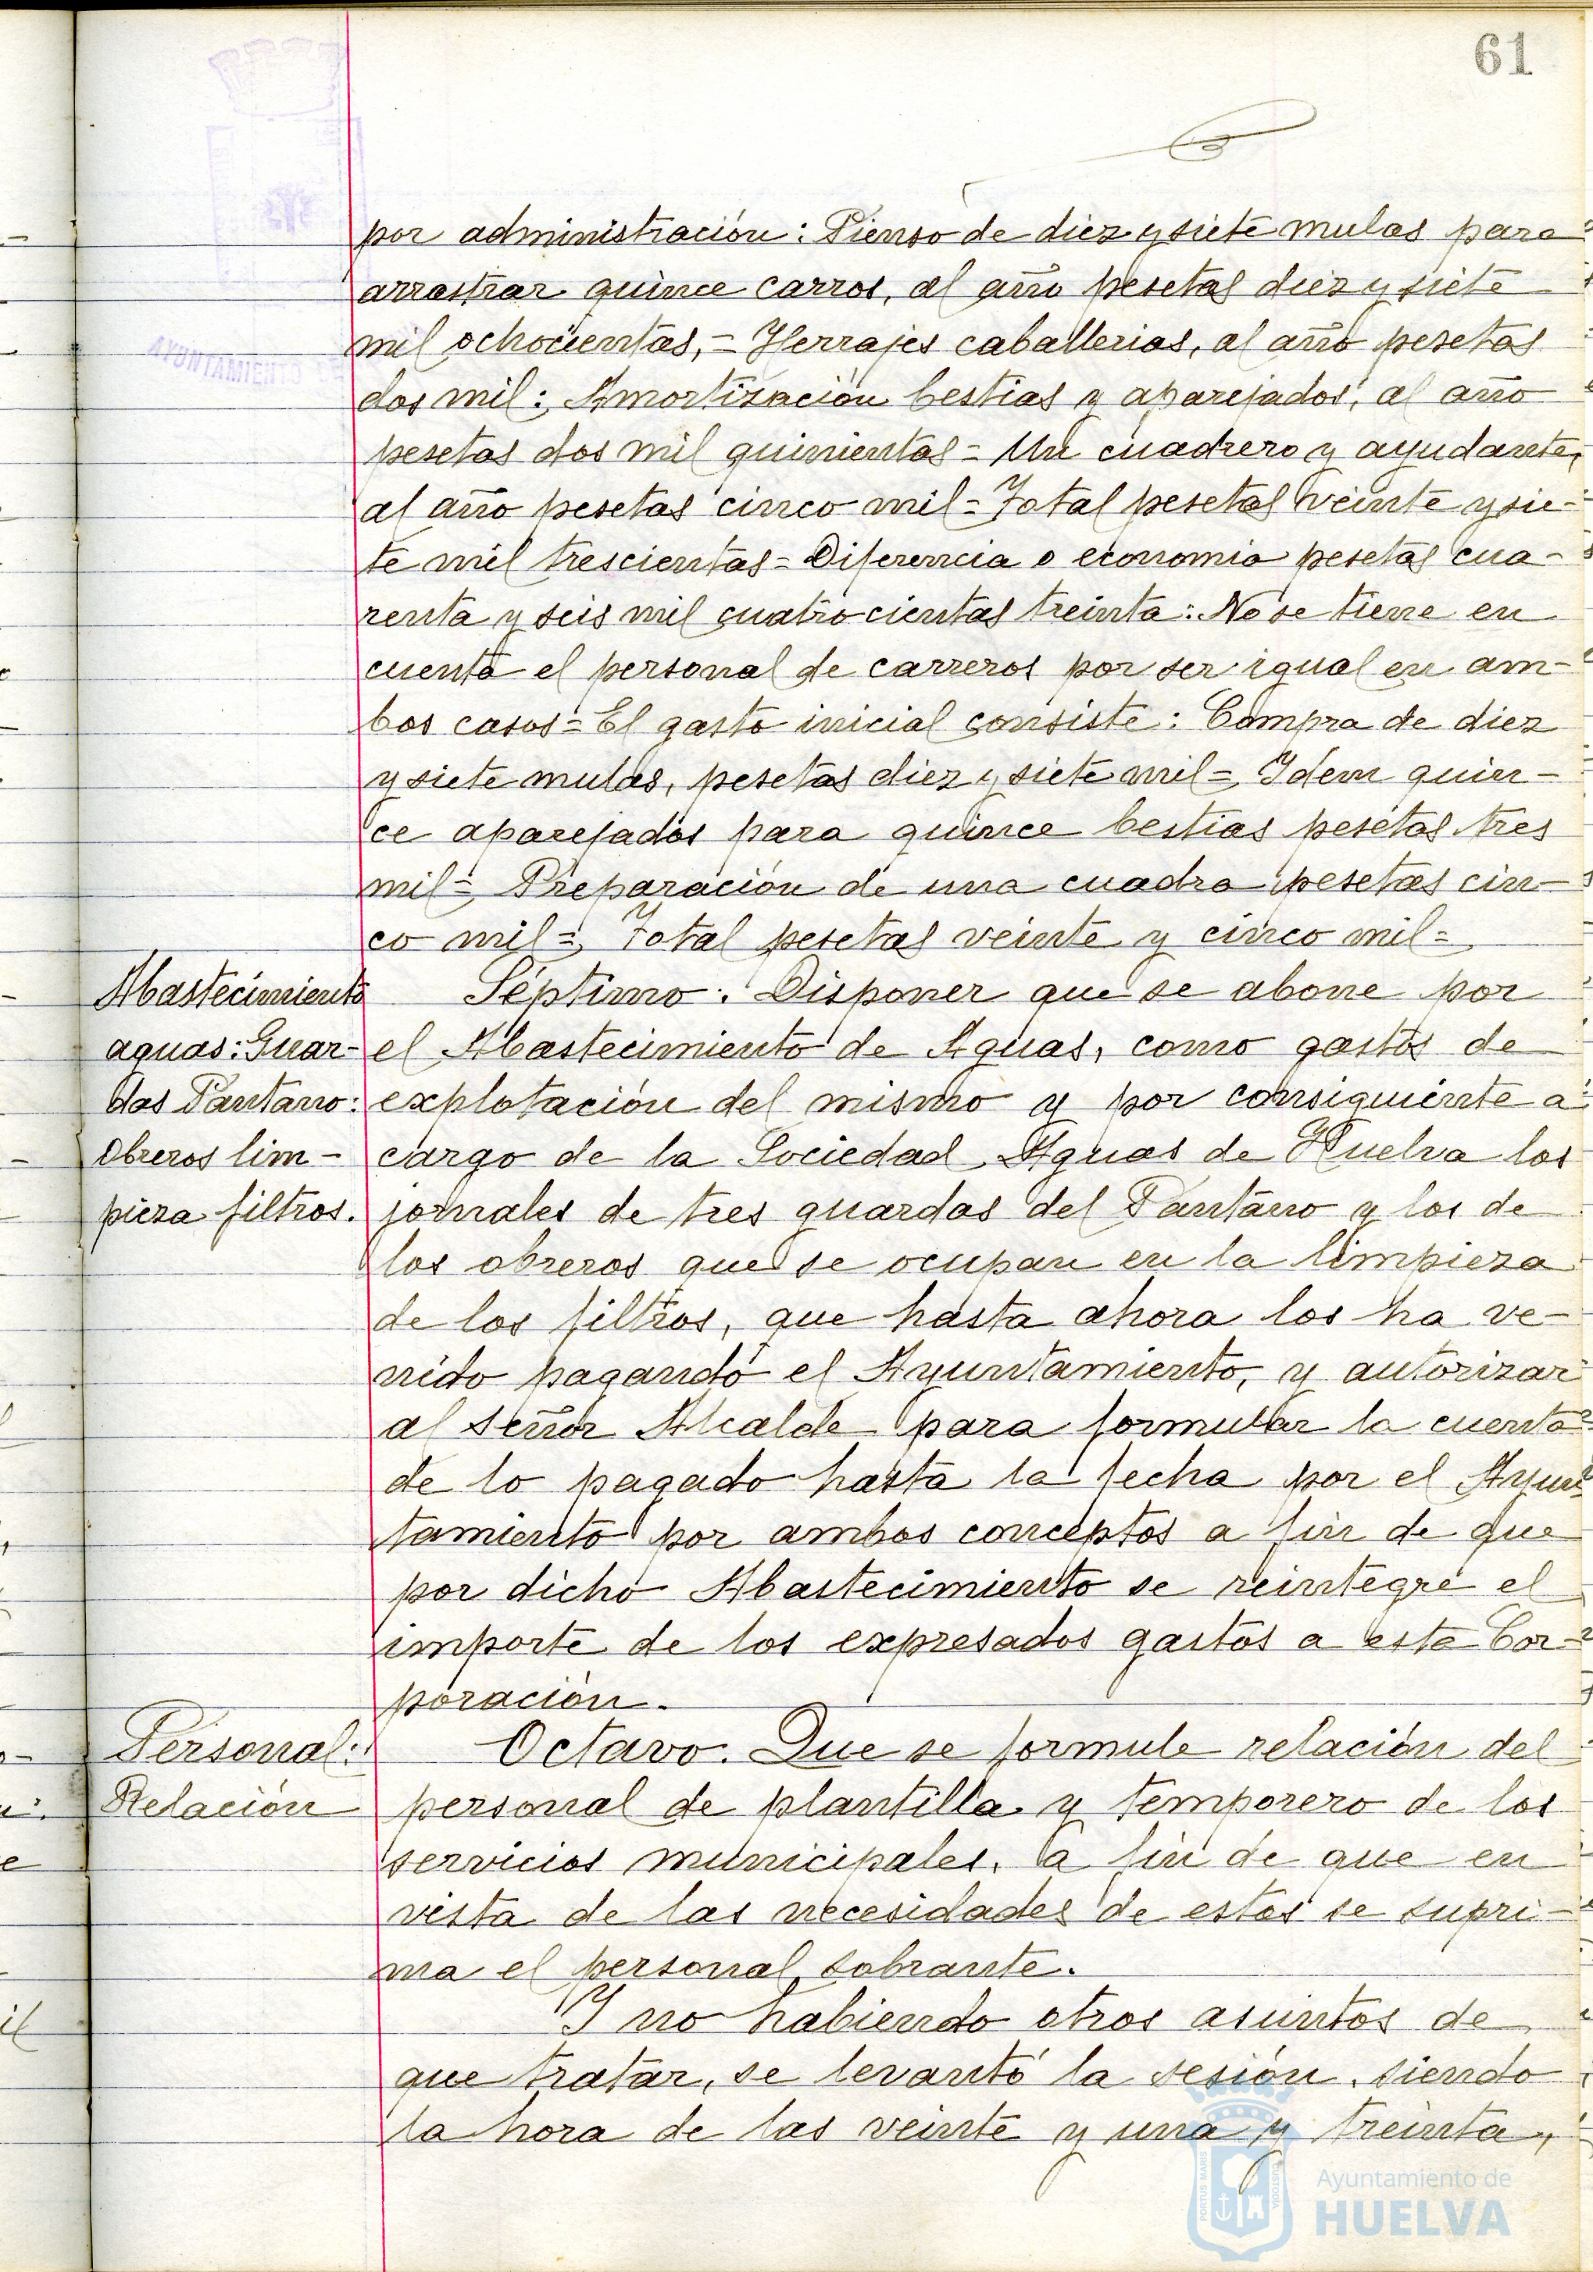 61
por administración: Pienso de diez y siete mulas para
arrastrar quince carros, al año pesetas diez y siete
mil ochocientas,= Herrajes caballerias, al año pesetas
AYUNTAMIENTO DE
dos mil: Amortización bestias y aparejados, al año
pesetas dos mil quinientas= Un cuadrero y ayudante,
al año pesetas cinco mil= Total pesetas veinte y sie-
te mil trescientas= Diferencia o economia pesetas cua-
renta y seis mil cuatrocientas treinta: No se tiene en
cuenta el personal de carreros por ser igual en am-
bos casos= El gasto inicial consiste: Compra de diez
y siete mulas, pesetas diez y siete mil= Idem quin-
ce aparejados para quince bestias pesetas tres
mil= Preparación de una cuadra pesetas cin-
co mil= Total pesetas veinte y cinco mil=
Abastecimiento
aguas: Guar-
das Pantano:
obreros lim-
pieza filtros.
Séptimo: Disponer que se abone por
el Abastecimiento de Aguas, como gastos de
explotación del mismo y por consiguiente a
cargo de la Sociedad Aguas de Huelva los
jornales de tres guardas del Pantano y los de
los obreros que se ocupan en la limpieza
de los filtros, que hasta ahora los ha ve-
nido pagando el Ayuntamiento, y autorizar
al señor Alcalde para formular la cuenta
de lo pagado hasta la fecha por el Ayun-
tamiento por ambos conceptos a fin de que
por dicho Abastecimiento se reintegre el
importe de los expresados gastos a esta Cor-
poración.
Personal:
Relación
Octavo. Que se formule relación del
personal de plantilla y temporero de los
servicios municipales, a fin de que en
vista de las necesidades de estos se supri-
ma el personal sobrante.
Y no habiendo otros asuntos de
que tratar, se levantó la sesión, siendo
la hora de las veinte y una y treinta,
PORTUS MARIS
CUSTODIA
Ayuntamiento de
HUELVA